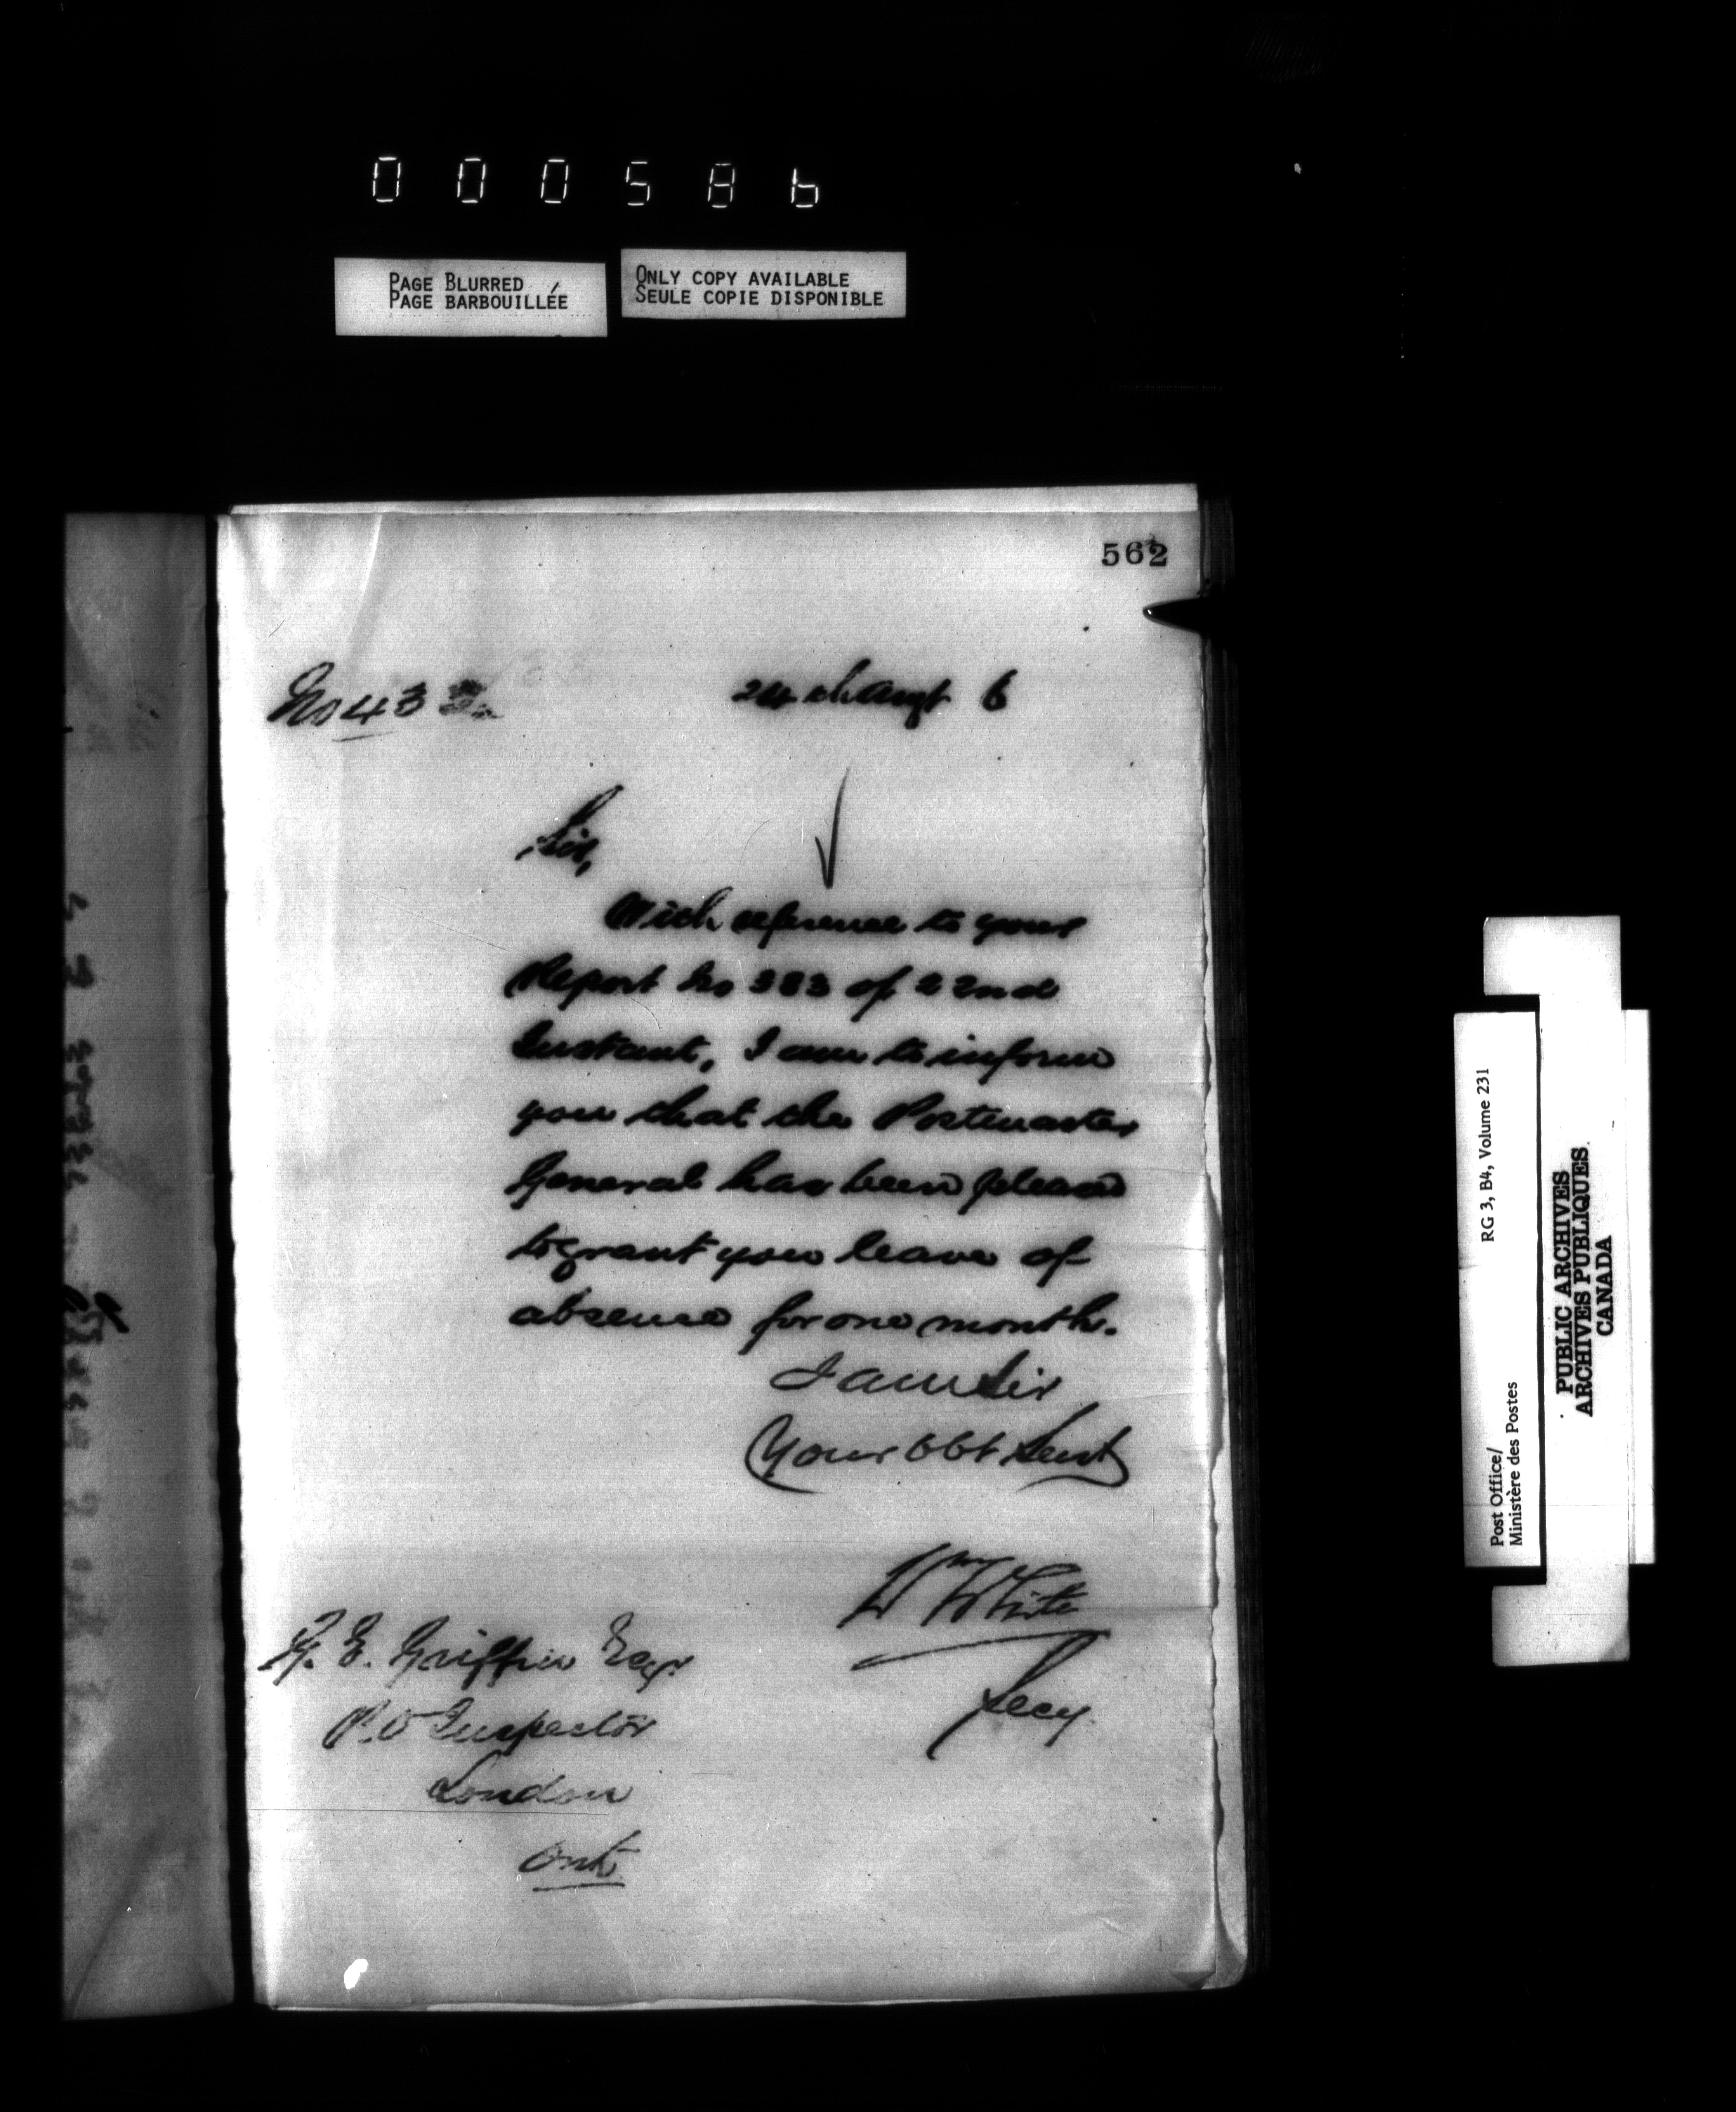 000586
PAGE BLURRED
PAGE BARBOUILLÉE
ONLY COPY AVAILABLE
SEULE COPIE DISPONIBLE
562
No 43
24th Augt 6
Sir,
With reference to your
Report No 383 of 22nd
Instant, I am to inform
you that the Postmaster
General has been pleased
to grant you leave of
absence for one month.
I am Sir
Your Obt Servt
Wm White
Secy.
G. E. Griffin Esqr.
P.O Inspector
London
Ont.
RG 3, B4, Volume 231
Post Office/
Ministère des Postes
PUBLIC ARCHIVES
ARCHIVES PUBLIQUES
CANADA